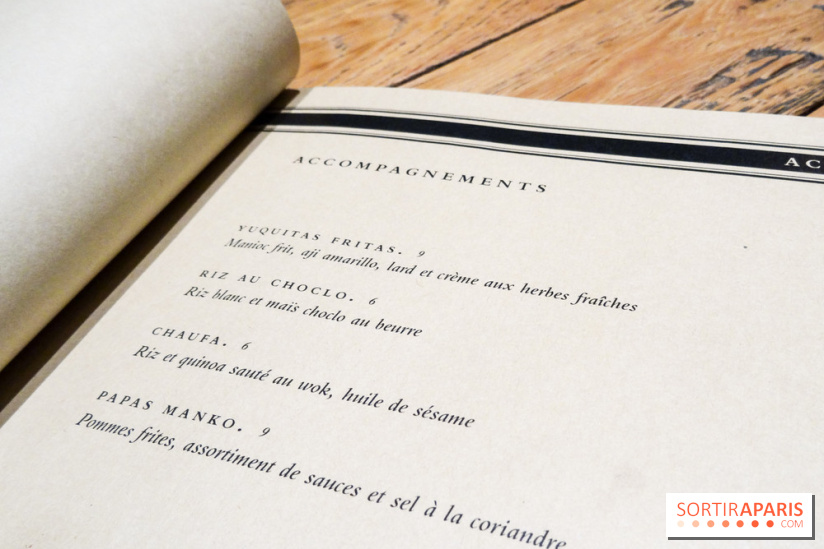 AC
ACCOMPAGNEMENTS
YUQUITAS FRITAS. 9
Manioc frit, aji amarillo, lard et crème aux herbes fraîches
RIZ AU CHOCLO. 6
Riz blanc et maïs choclo au beurre
CHAUFA. 6
Riz et quinoa sauté au wok, huile de sésame
PAPAS MANKO. 9
Pommes frites, assortiment de sauces et sel à la coriandre
SORTIRAPARIS
.COM